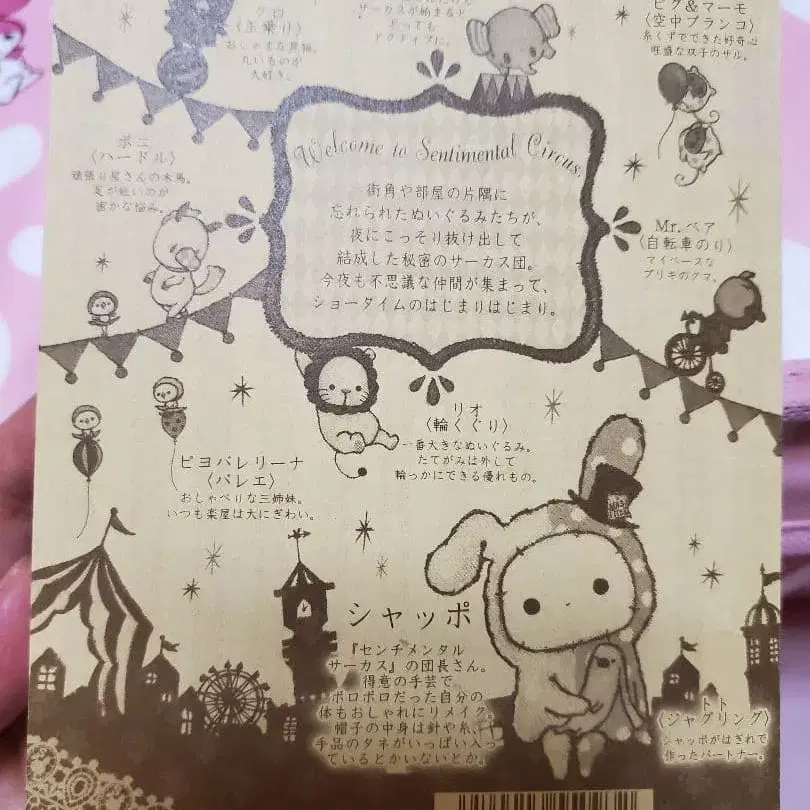 クロ
〈玉乗り〉
おしゃまな黒猫。
丸いものが
大好き。
サーカスが始まると
とっても
アクティブに。
ピグ&マーモ
〈空中ブランコ〉
糸くずでできた好奇心
旺盛な双子のサル。
ポニ
〈ハードル〉
頑張り屋さんの木馬。
足が短いのが
密かな悩み。
Welcome to Sentimental Circus.
街角や部屋の片隅に
忘れられたぬいぐるみたちが、
夜にこっそり抜け出して
結成した秘密のサーカス団。
今夜も不思議な仲間が集まって、
ショータイムのはじまりはじまり。
Mr.ベア
〈自転車のり〉
マイペースな
ブリキのクマ。
リオ
〈輪くぐり〉
一番大きなぬいぐるみ。
たてがみは外して
輪っかにできる優れもの。
ピヨバレリーナ
〈バレエ〉
おしゃべりな三姉妹。
いつも楽屋は大にぎわい。
シャッポ
『センチメンタル
サーカス』の団長さん。
得意の手芸で、
ボロボロだった自分の
体もおしゃれにリメイク。
帽子の中身は針や糸、
手品のタネがいっぱい入っ
ているとかいないとか。
トト
〈ジャグリング〉
シャッポがはぎれで
作ったパートナー。